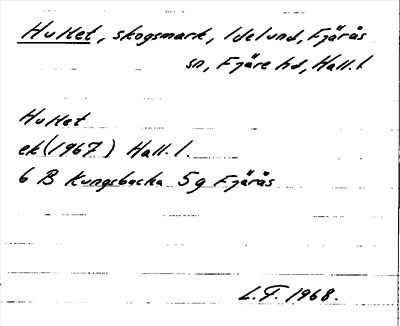 Hultet, skogsmark, Idelund, Fjärås
sn, Fjäre hd, Hall. l.
Hultet
ek (1967) Hall. l.
6 B Kungsbacka 5g Fjärås
L.F. 1968.